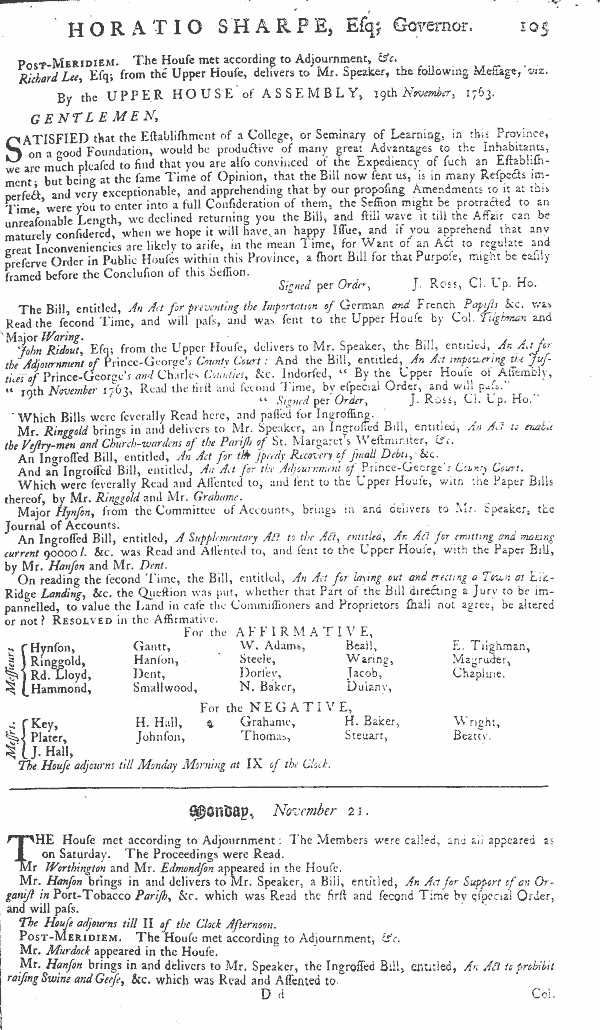 HORATIO SHARPE, Eſq; Governor. 105
POST-MERIDIEM. The Houſe met according to Adjournment, &c.
Richard Lee, Eſq; from the Upper Houſe, delivers to Mr. Speaker, the following Meſſage, viz.
By the UPPER HOUSE of ASSEMBLY, 19th November, 1763.
GENTLEMEN,
SATISFIED that the Eſtabliſhment of a College, or Seminary of Learning, in this Province,
on a good Foundation, would be productive of many great Advantages to the Inhabitants,
we are much pleaſed to find that you are alſo convinced of the Expediency of ſuch an Eſtabliſh-
ment; but being at the ſame Time of Opinion, that the Bill now ſent us, is in many Reſpects im-
perfect, and very exceptionable, and apprehending that by our propoſing Amendments to it at this
Time, were you to enter into a full Conſideration of them, the Seſſion might be protracted to an
unreaſonable Length, we declined returning you the Bill, and ſtill wave it till the Affair can be
maturely conſidered, when we hope it will have an happy Iſſue, and if you apprehend that any
great Inconveniencies are likely to ariſe, in the mean Time, for Want of an Act to regulate and
preſerve Order in Public Houſes within this Province, a ſhort Bill for that Purpoſe, might be eaſily
framed before the Concluſion of this Seſſion.
Signed per Order, J. Ross, Cl. Up. Ho.
The Bill, entitled, An Act for preventing the Importation of German and French Papiſts &c. was
Read the ſecond Time, and will paſs, and was ſent to the Upper Houſe by Col. Tilghman and
Major Waring.
John Ridout, Eſq; from the Upper Houſe, delivers to Mr. Speaker, the Bill, entitled, An Act for
the Adjournment of Prince-George's County Court: And the Bill, entitled, An Act impowering the Juſ-
tices of Prince-George's and Charles Counties, &c. Indorſed, “ By the Upper Houſe of Aſſembly,
“ 19th November 1763, Read the firſt and ſecond Time, by eſpecial Order, and will paſs.”
“ Signed per Order, J. Ross, Cl. Up. Ho.”
Which Bills were ſeverally Read here, and paſſed for Ingroſſing.
Mr. Ringgold brings in and delivers to Mr. Speaker, an Ingroſſed Bill, entitled, An Act to enable
the Veſtry-men and Church-wardens of the Pariſh of St. Margaret's Weſtminſter, &c.
An Ingroſſed Bill, entitled, An Act for the ſpeedy Recovery of ſmall Debts, &c.
And an Ingroſſed Bill, entitled, An Act for the Adjournment of Prince-George's County Court.
Which were ſeverally Read and Aſſented to, and ſent to the Upper Houſe, with the Paper Bills
thereof, by Mr. Ringgold and Mr. Grahame.
Major Hynſon, from the Committee of Accounts, brings in and delivers to Mr. Speaker, the
Journal of Accounts.
An Ingroſſed Bill, entitled, A Supplementary Act to the Act, entitled, An Act for emitting and making
current 90000 l. &c. was Read and Aſſented to, and ſent to the Upper Houſe, with the Paper Bill,
by Mr. Hanſon and Mr. Dent.
On reading the ſecond Time, the Bill, entitled, An Act for laying out and erecting a Town at Elk-
Ridge Landing, &c. the Queſtion was put, whether that Part of the Bill directing a Jury to be im-
pannelled, to value the Land in caſe the Commiſſioners and Proprietors ſhall not agree, be altered
or not? RESOLVED in the Affirmative.
For the AFFIRMATIVE,
Meſſieurs
Hynſon, Gantt, W. Adams, Beall, E. Tilghman,
Ringgold, Hanſon, Steele, Waring, Magruder,
Rd. Lloyd, Dent, Dorſey, Jacob, Chapline.
Hammond, Smallwood, N. Baker, Dulany,
For the NEGATIVE,
Meſſrs.
Key, H. Hall, Grahame, H. Baker, Wright,
Plater, Johnſon, Thomas, Steuart, Beatty.
J. Hall,
The Houſe adjourns till Monday Morning at IX of the Clock.
Monday, November 21.
THE Houſe met according to Adjournment: The Members were called, and all appeared as
on Saturday. The Proceedings were Read.
Mr Worthington and Mr. Edmondſon appeared in the Houſe.
Mr. Hanſon brings in and delivers to Mr. Speaker, a Bill, entitled, An Act for Support of an Or-
ganiſt in Port-Tobacco Pariſh, &c. which was Read the firſt and ſecond Time by eſpecial Order,
and will paſs.
The Houſe adjourns till II of the Clock Afternoon.
POST-MERIDIEM. The Houſe met according to Adjournment, &c.
Mr. Murdock appeared in the Houſe.
Mr. Hanſon brings in and delivers to Mr. Speaker, the Ingroſſed Bill, entitled, An Act to prohibit
raiſing Swine and Geeſe, &c. which was Read and Aſſented to.
D d Col.